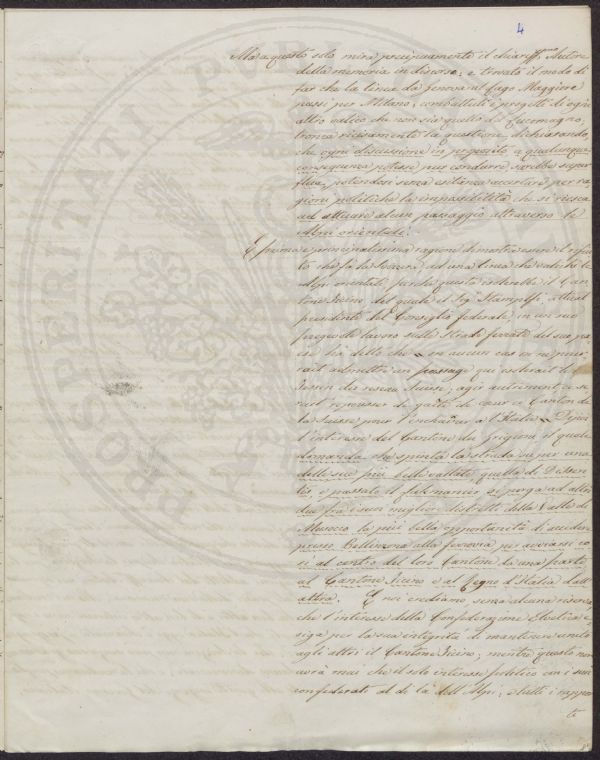 4
Ma a questo solo mira precipuamente il chiariss.mo Autore
della memoria in discorso; e trovato il modo di
far che la linea da Genova al Lago Maggiore
passi per Milano, combattuti i progetti di ogni
altro valico che non sia quello del Lucmagno,
tronca ricisamente la questione, dichiarando,
che ogni discussione in proposito, a qualunque
conseguenza potesse pur condurre, sarebbe super
flua, potendosi senza esitanza accertare per ra
gioni politiche la impossibilità che si riesca
ad attuare alcun passaggio attraverso le
Alpi orientali.
E prima e principalissima ragione dimostra essere il rifiu
to che fa la Svizzera ad una linea che valichi le
Alpi orientali, perchè questa isolerebbe il Can
tone Ticino, del quale il Sig. Stämpfli, attual
presidente del Consiglio federale in un suo
pregevole lavoro sulle strade ferrate del suo pa
ese ha detto che « en aucun cas on ne pour
rait admettre un passage qui isolerait le
Tessin du reseau Suisse; agir autrement ce se
rait repousser de gaité de coeur ce Canton de
la Suisse pour l'enchaîner à l'Italie »
l'interesse del Cantone dei Grigioni il quale
domanda che spinta la strada su per una
delle sue più belle vallate quella di Dissen
tis e passato il si porga ad altri
due fra i suoi migliori distretti della Valle di
Mesocco la più bella opportunità di accedere
presso Bellinzona alla ferrovia per avviarsi co
sì al centro del loro Cantone da una parte
al Cantone Ticino e al Regno d'Italia dall'
altra. E noi crediamo, senza alcuna riserva
che l'interesse della Confederazione Elvetica e
siga per la sua integrità di mantenere unito
agli altri il Cantone Ticino; mentre questo non
avrà mai che il solo interesse politico con i suoi
confederati al di là dell'Alpi, e tutti i rappor
ti